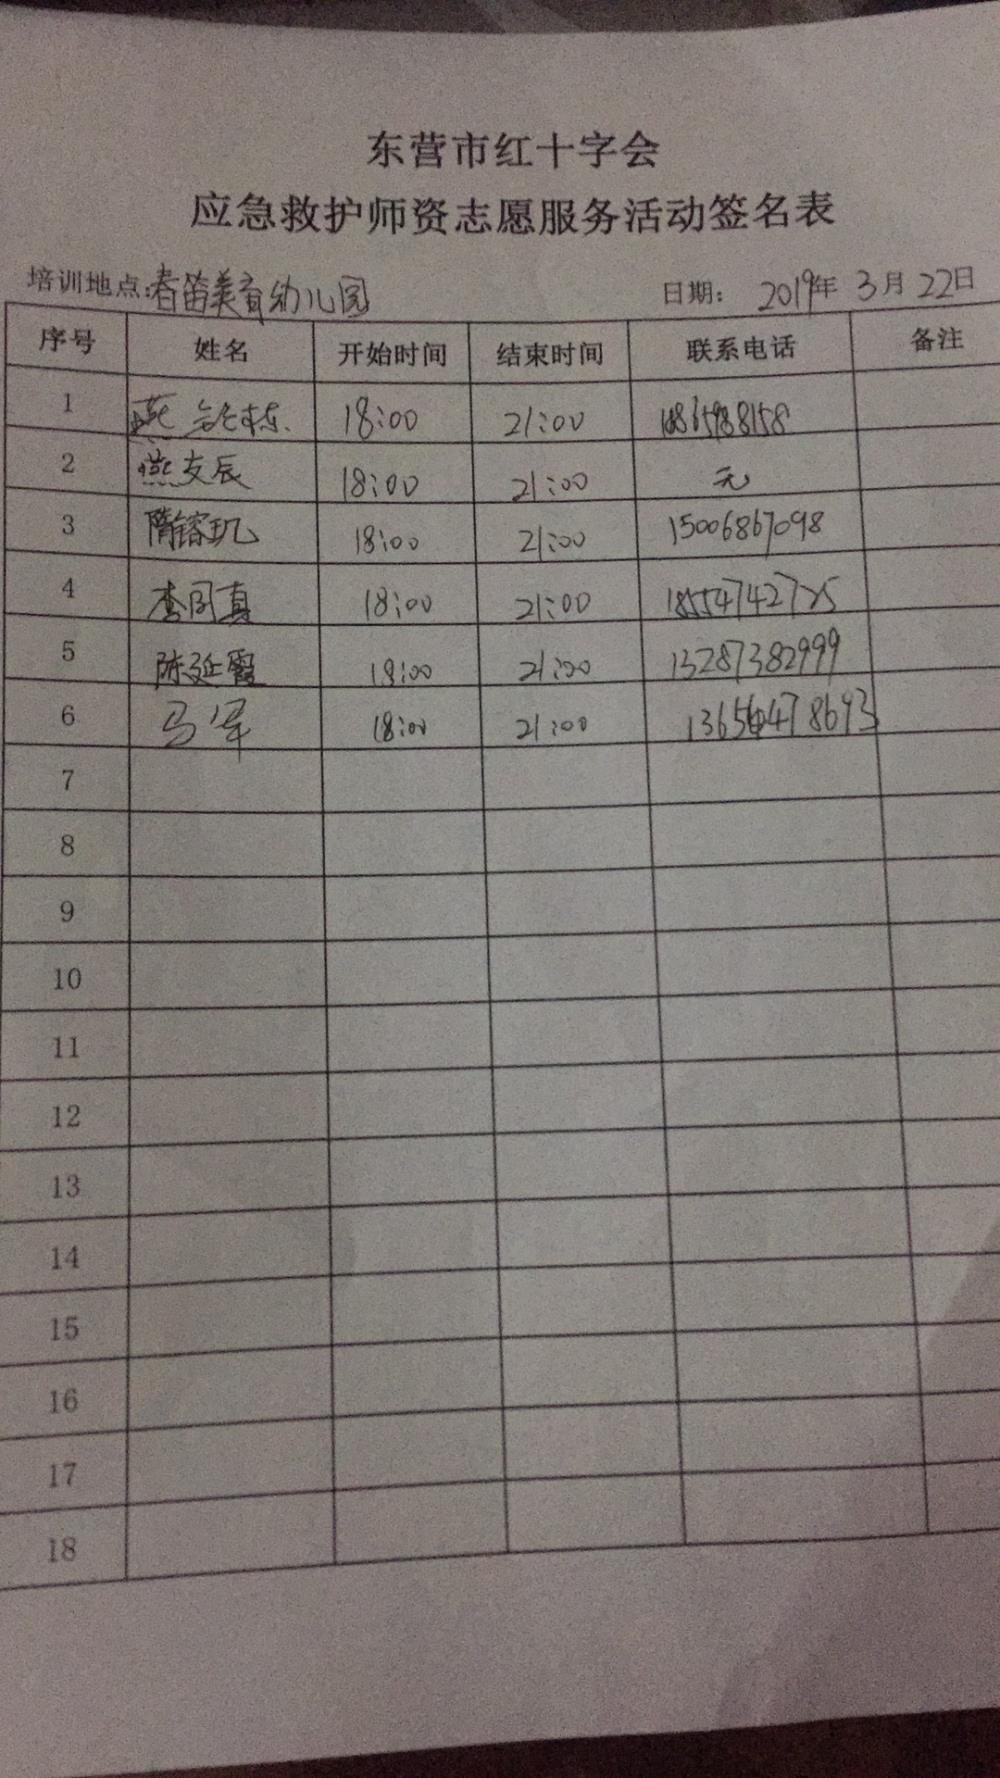 东营市红十字会
应急救护师资志愿服务活动签名表
培训地点:春笛美育幼儿园 日期: 2019年 3月 22日
序号 姓名 开始时间 结束时间 联系电话 备注
1 燕 18:00 21:00
2 燕友辰 18:00 21:00 无
3 隋镕玑 18:00 21:00 15006867098
4 李同真 18:00 21:00 18554742725
5 陈延霞 18:00 21:00 13287382999
6 马军 18:00 21:00
7
8
9
10
11
12
13
14
15
16
17
18